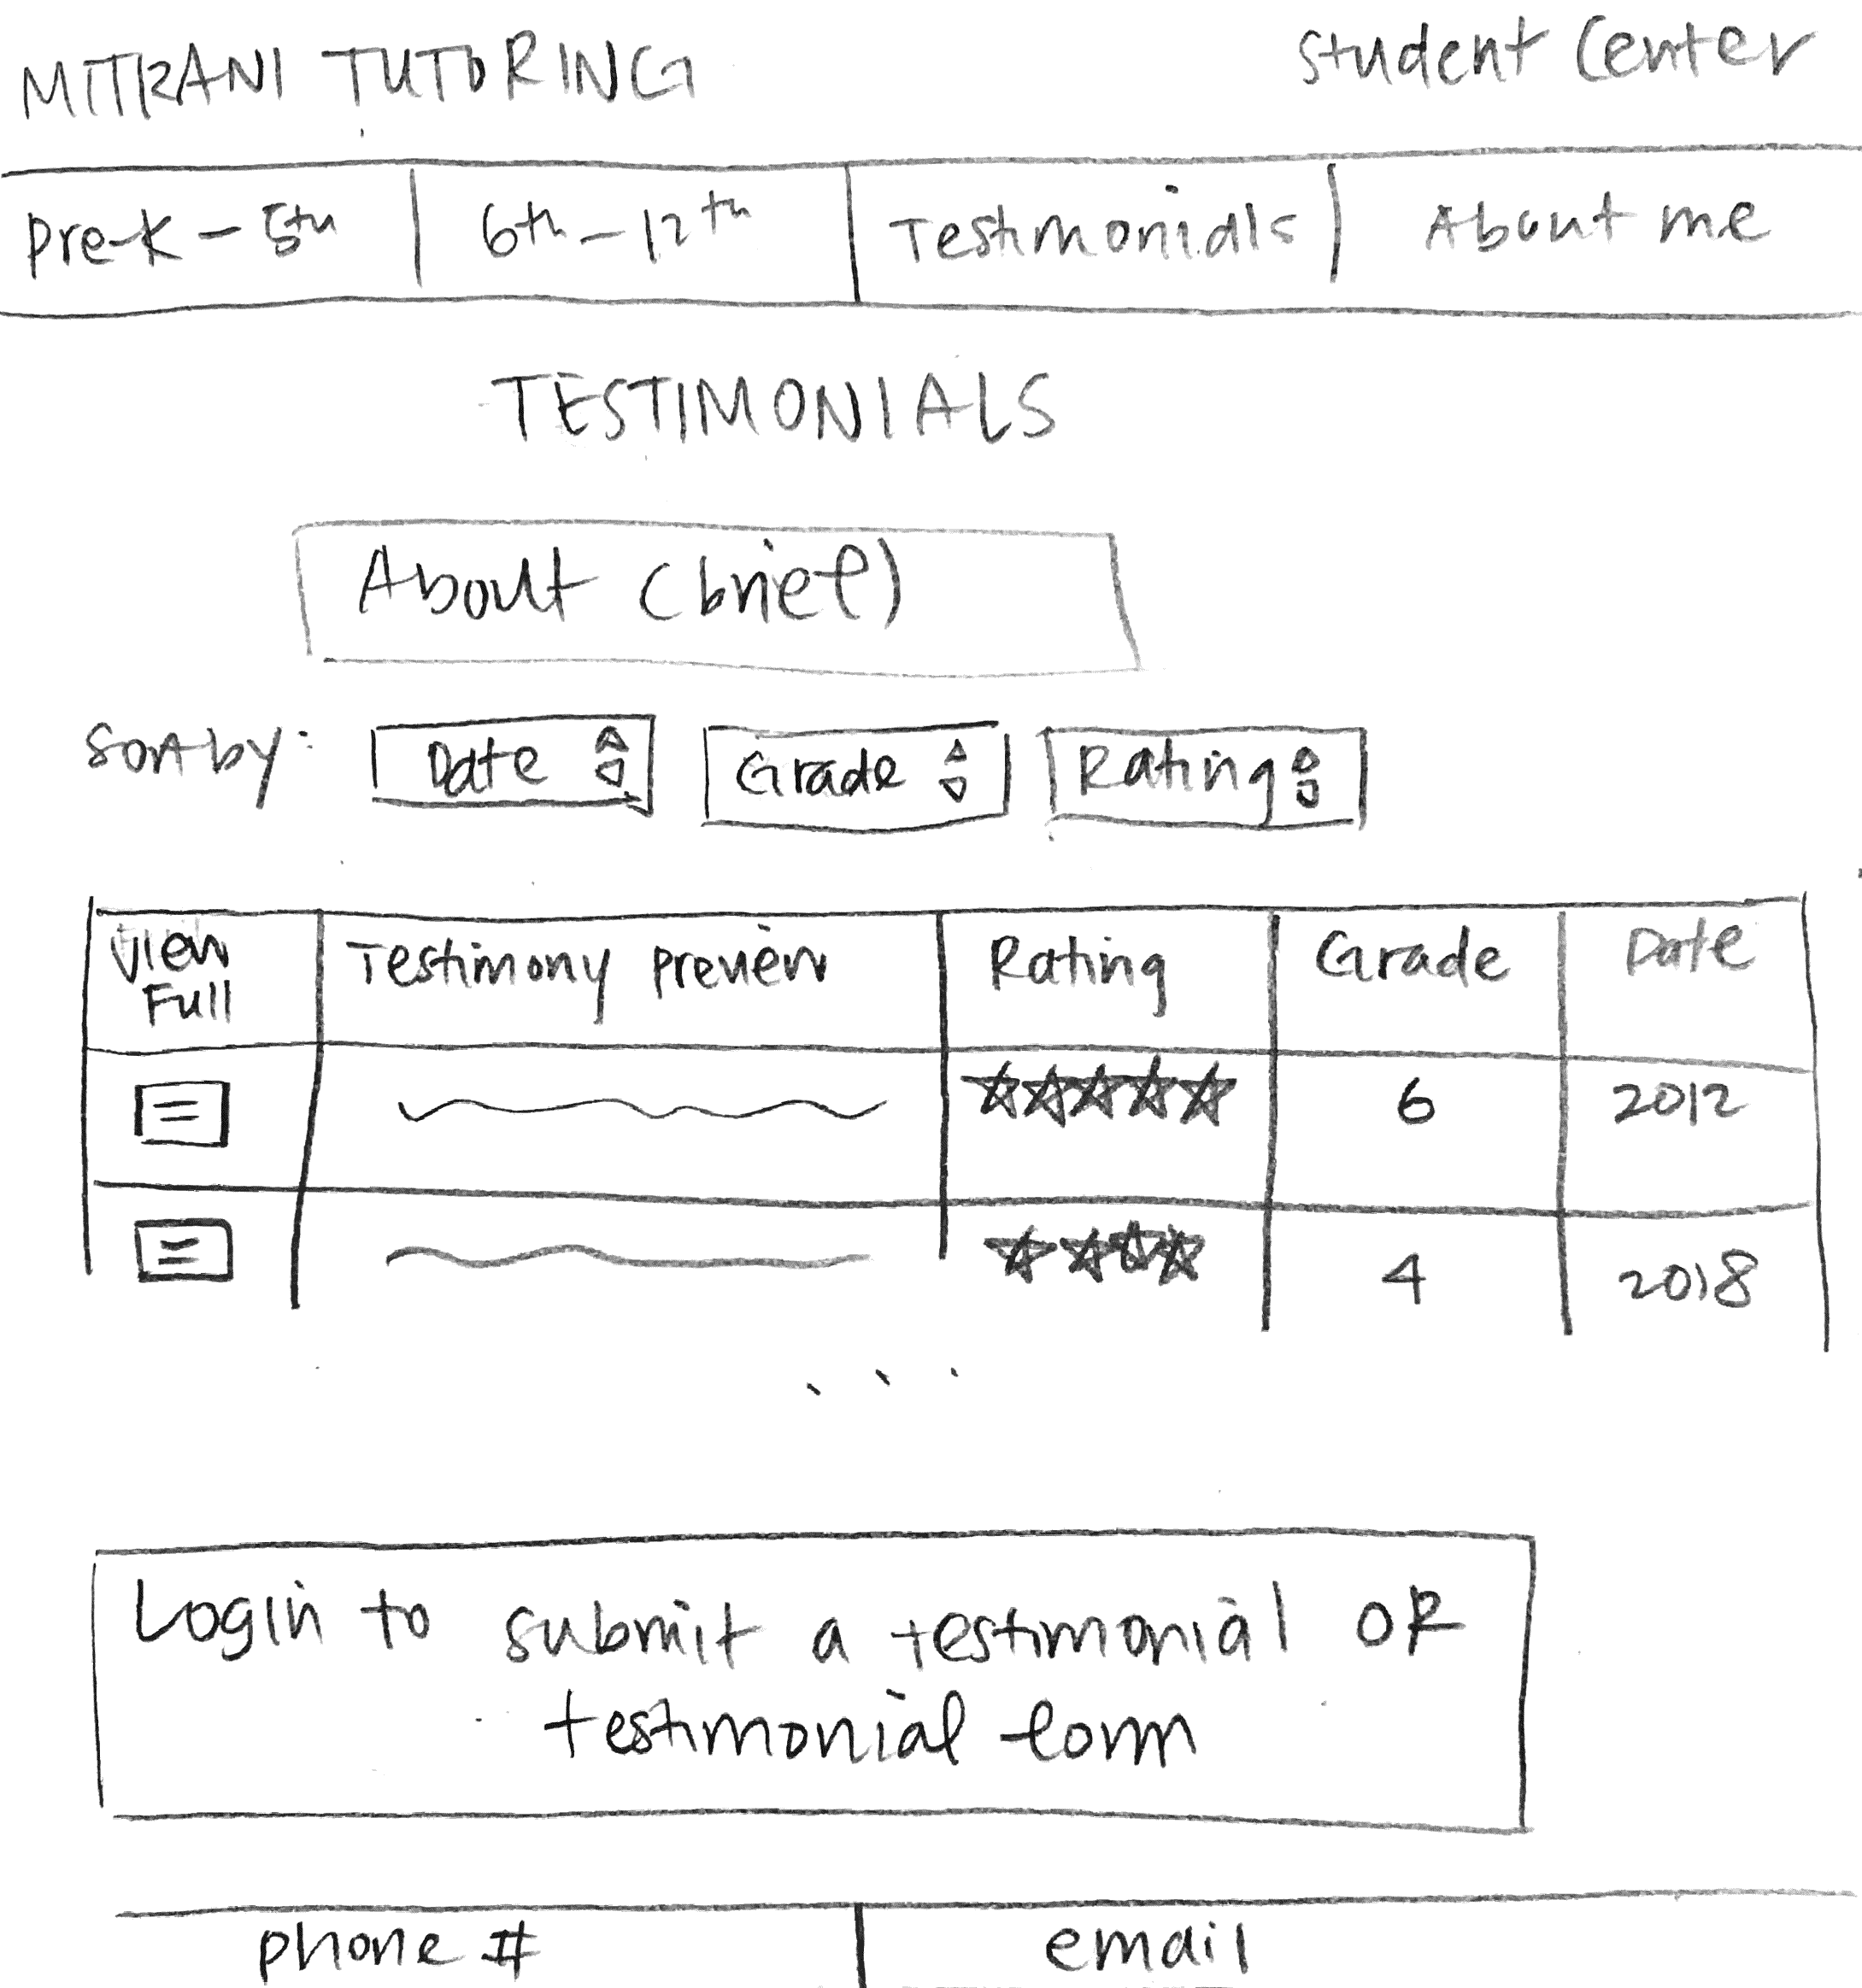 MITRANI TUTORING Student Center
Pre-K - 5th 6th - 12th Testimonials About me
TESTIMONIALS
About (brief)
Sort by: Date Grade Rating
View Full Testimony Preview Rating Grade Date
6 2012
4 2018
...
Login to submit a testimonial OR
testimonial form
phone # email